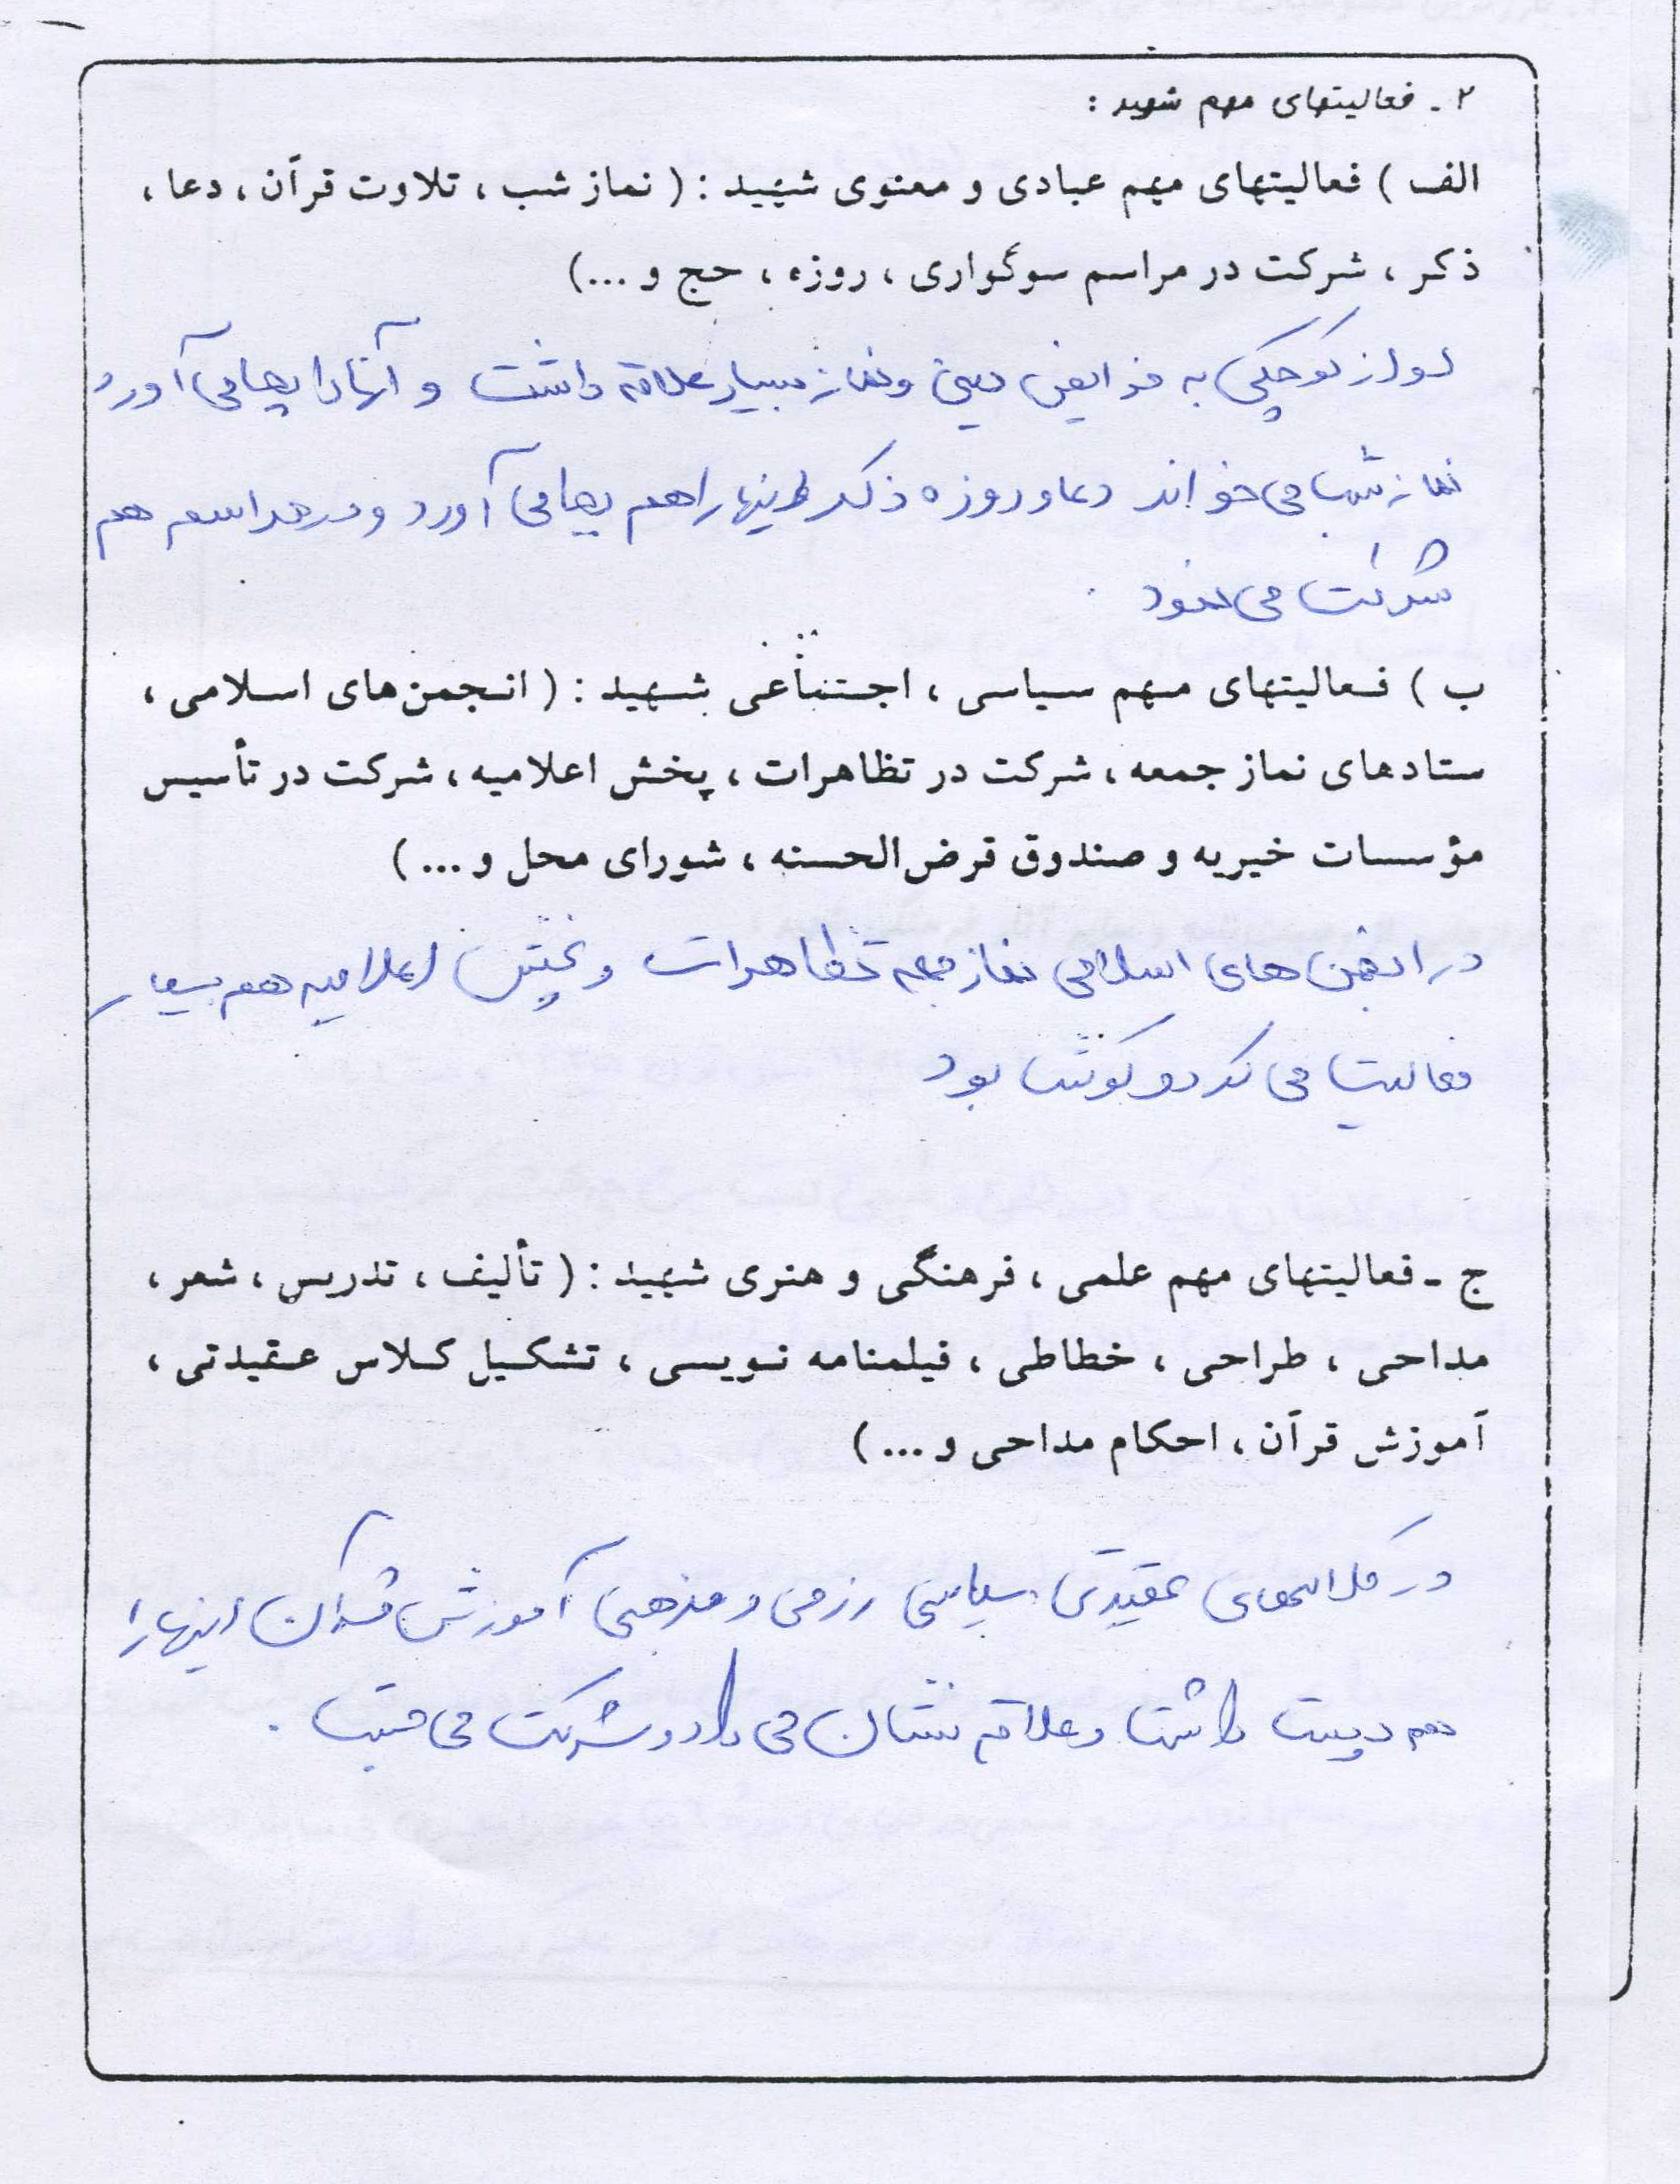 ۲ - فعالیتهای مهم شهید :
الف ) فعالیتهای مهم عبادی و معنوی شهید : ( نماز شب ، تلاوت قرآن ، دعا ،
ذکر ، شرکت در مراسم سوگواری ، روزه ، حج و ...)
او از کوچکی به فرایض دینی و نماز بسیار علاقه داشت و آنها را بجا می آورد
نماز شب می خواند دعا و روزه ذکر اینها را هم بجا می آورد و در مراسم هم
شرکت می نمود .
ب ) فعالیتهای مهم سیاسی ، اجتماعی شهید : ( انجمن های اسلامی ،
ستادهای نماز جمعه ، شرکت در تظاهرات ، پخش اعلامیه ، شرکت در تأسیس
مؤسسات خیریه و صندوق قرض الحسنه ، شورای محل و ... )
در انجمن های اسلامی نماز جمعه تظاهرات و پخش اعلامیه هم بسیار
فعالیت می کرد و کوشا بود
ج - فعالیتهای مهم علمی ، فرهنگی و هنری شهید : ( تألیف ، تدریس ، شعر ،
مداحی ، طراحی ، خطاطی ، فیلمنامه نویسی ، تشکیل کلاس عقیدتی ،
آموزش قرآن ، احکام مداحی و ... )
در کلاسهای عقیدتی سیاسی رزمی و مذهبی آموزش قرآن اینها را
هم دوست داشت و علاقه نشان می داد و شرکت می جست .